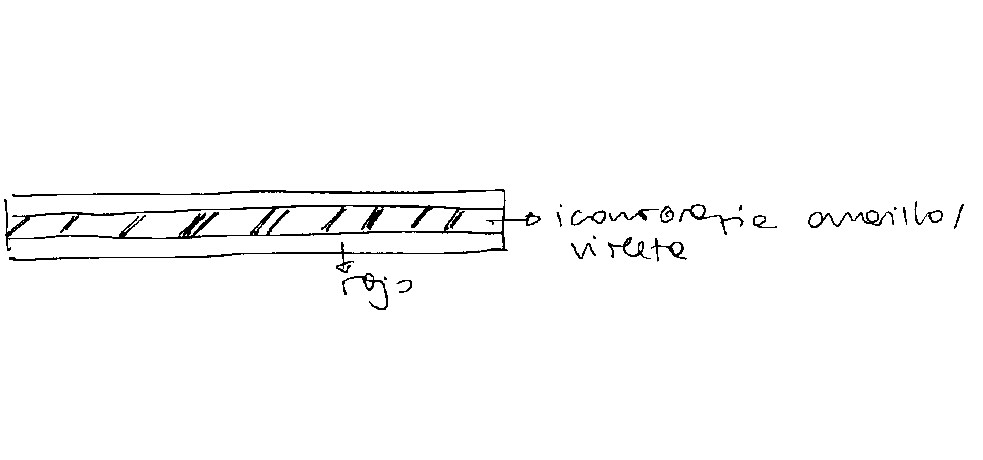 iconografia amarillo/
violeta
rojo